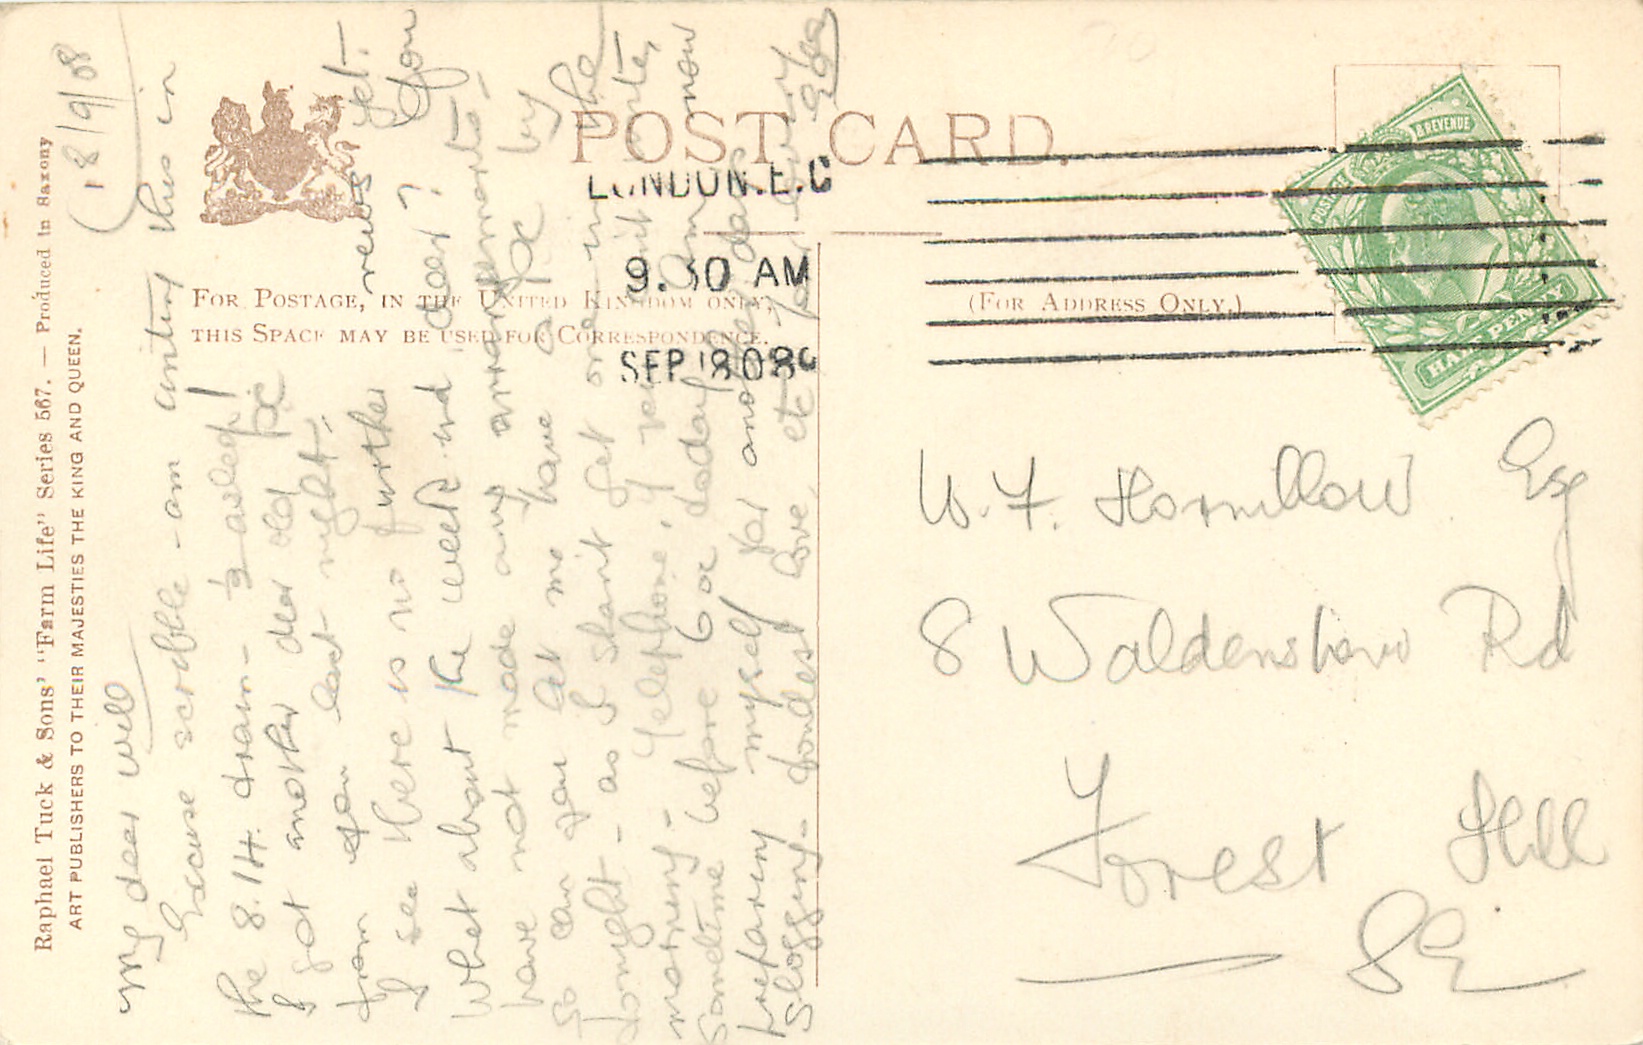 Raphael Tuck & Sons' "Farm Life" Series 567. — Produced in Saxony
ART PUBLISHERS TO THEIR MAJESTIES THE KING AND QUEEN.
POST CARD.
FOR POSTAGE, IN THE UNITED KINGDOM ONLY,
THIS SPACE MAY BE USED FOR CORRESPONDENCE.
(FOR ADDRESS ONLY.)
LONDON.E.C
9.30 AM
SEP 18 08
POSTAGE & REVENUE
HALF PENNY
(18/9/08
My dear Will
Excuse scribble - am writing this in
the 8.14. train - ½ asleep!
I got another dear old pc
from you last night.
I see there is no further news yet.
What about the week end dear? You
have not made any arrangements -
So can you let me have a pc by
tonight - as I shan't get one in the
morning - Telephone, if you can't write,
sometime before 6 oc today. Am now
preparing myself for another days
slogging - fondest love etc for ever
W. F. Hornillow Esq
8 Waldenshaw Rd
Forest Hill
SE